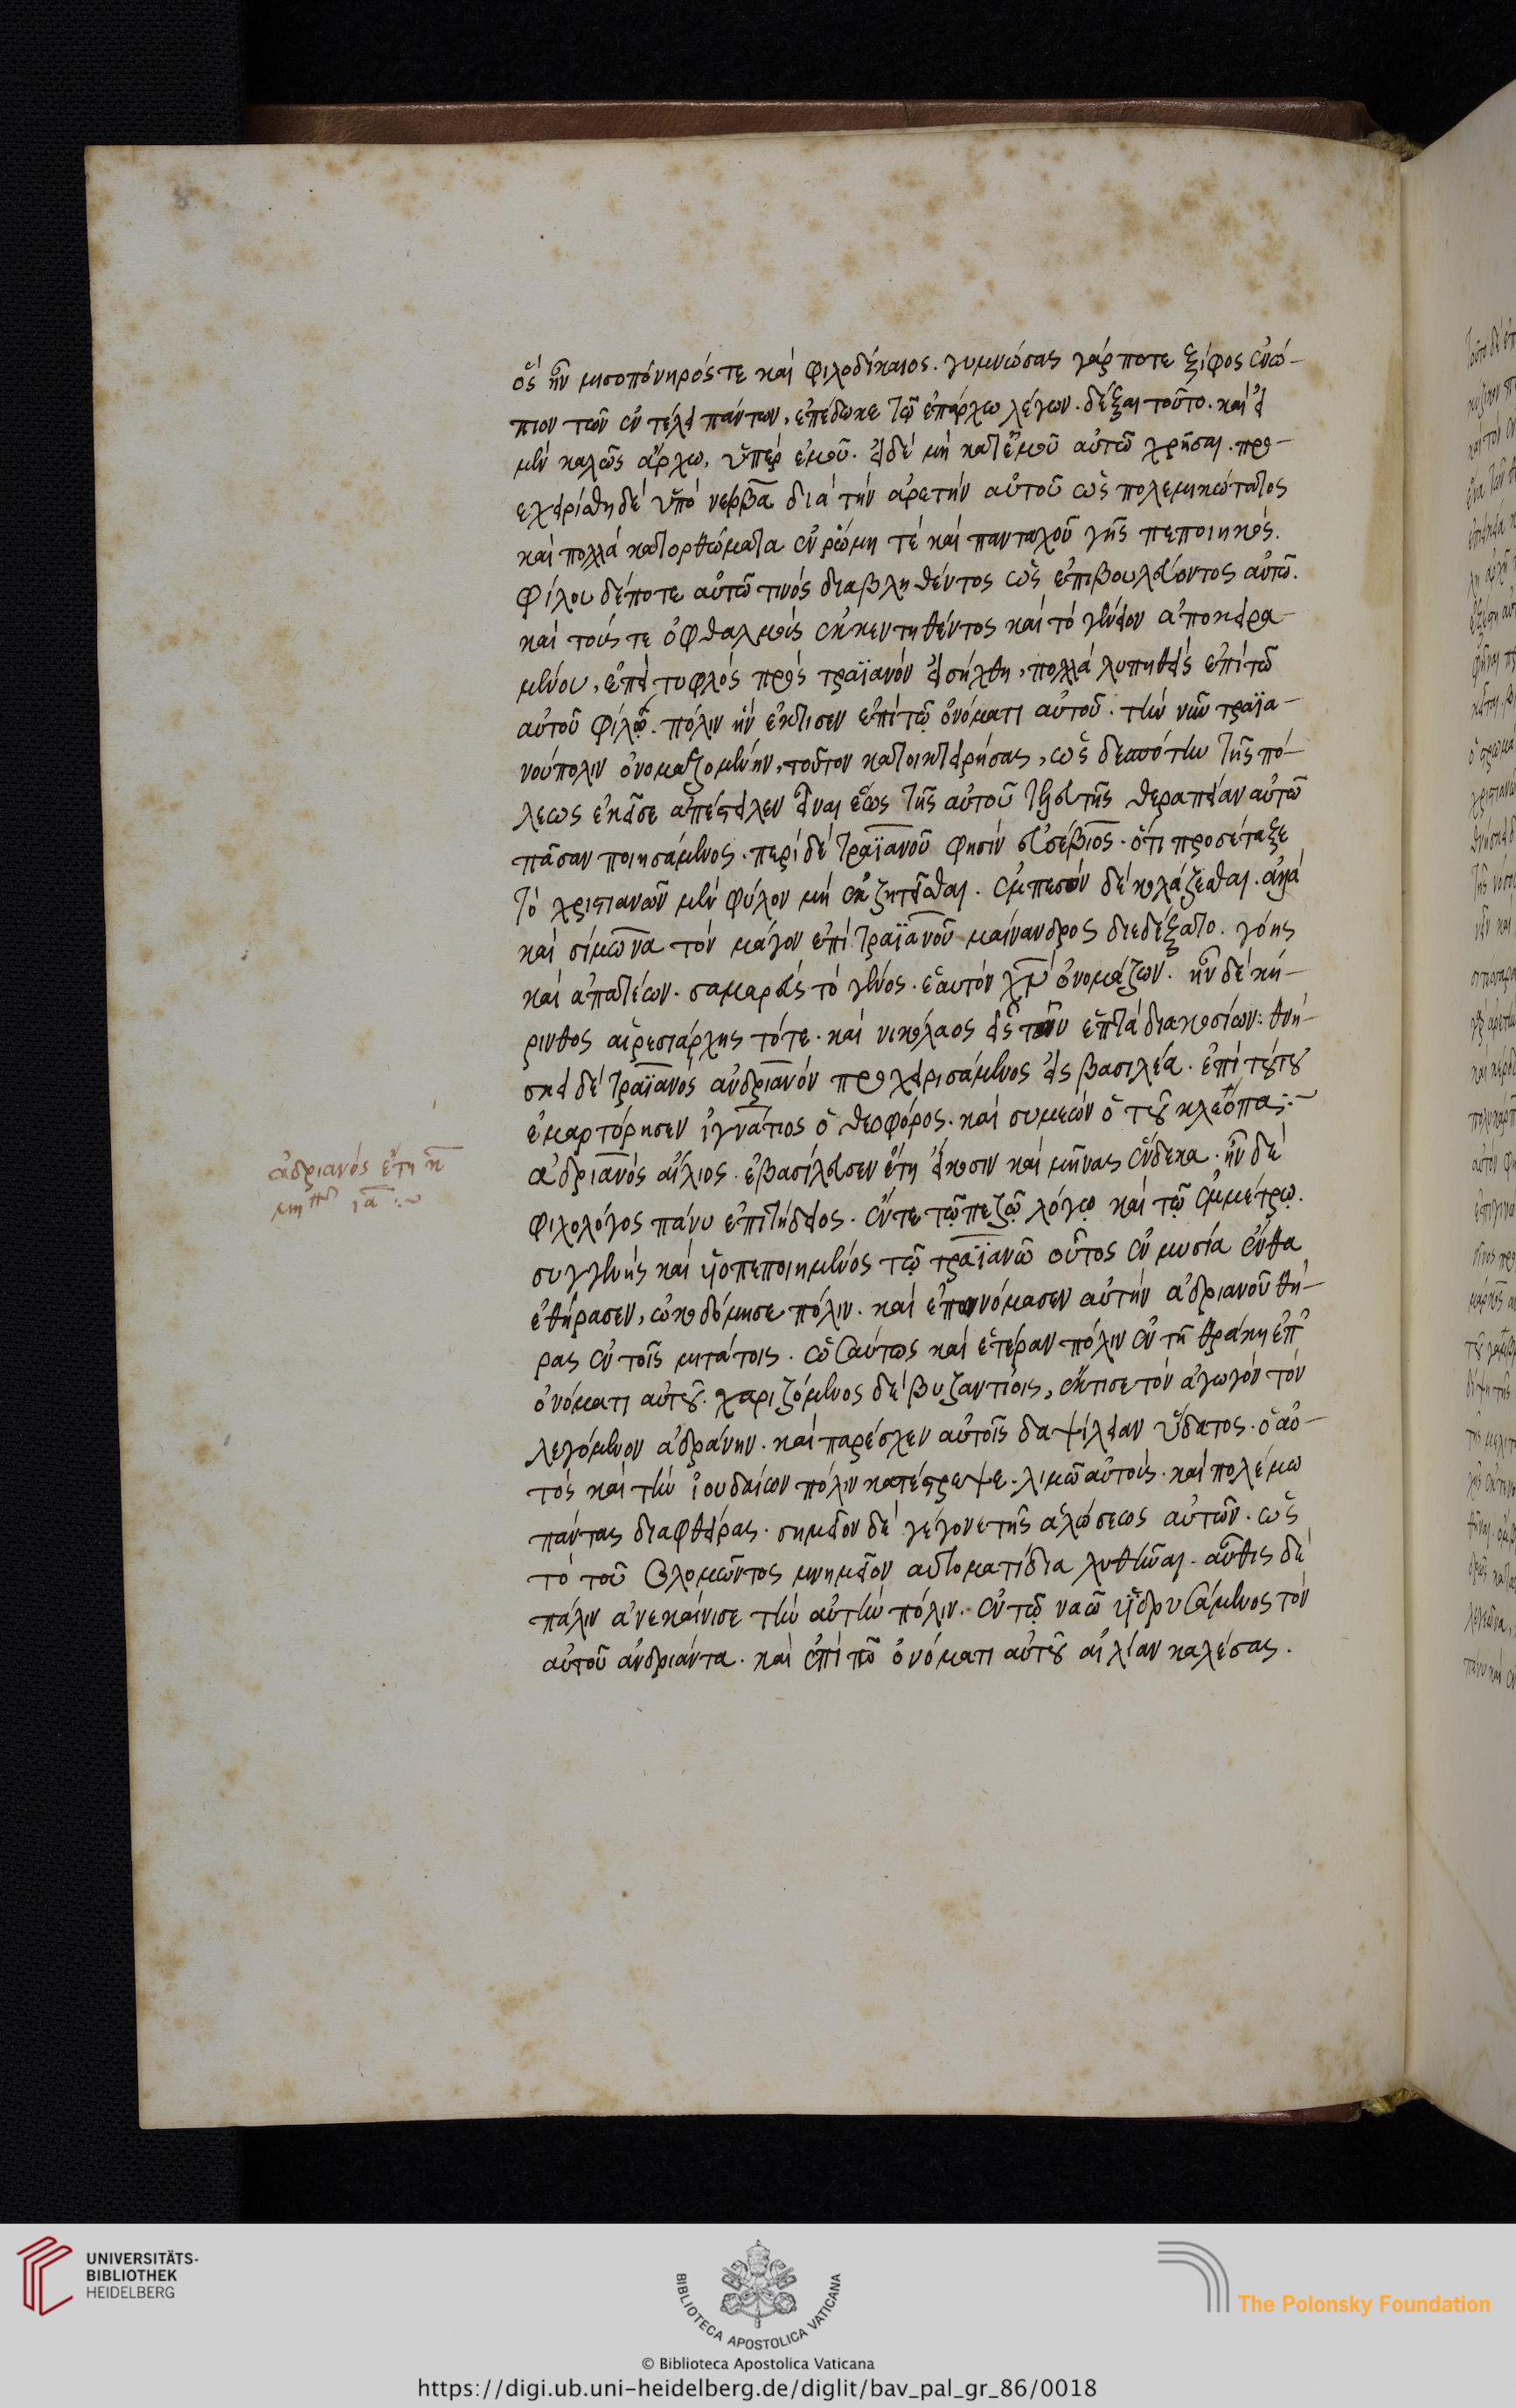 ὃς ἦν μισοπόνηρός τε καὶ φιλοδίκαιος. γυμνώσας γάρ ποτε ξίφος ἐνώ-
πιον τῶν ἐν τέλει πάντων, ἐπέδωκε τῷ ἐπάρχω λέγων. δέξαι τοῦτο. καὶ εἰ
μὲν καλῶς ἄρχω, ὑπὲρ ἐμοῦ. εἰ δὲ μὴ κατ' ἐμοῦ αὐτῶ χρῆσαι. προ-
εχειρίσθη δὲ ὑπὸ νερβᾶ διὰ τὴν ἀρετὴν αὐτοῦ ὡς πολεμικώτατος
καὶ πολλὰ κατορθώματα ἐν ῥώμη τὲ καὶ πανταχοῦ γῆς πεποιηκός.
φίλου δέποτε αὐτῶ τινός διαβληθέντος ὡς ἐπιβουλεύοντος αὐτῶ.
καὶ τούς τε ὀφθαλμοὺς ἐκκεντηθέντος καὶ τὸ γένειον ἀποκειρα-
μένου, ἐπεὶ τυφλός πρὸς τραϊανὸν εἰσήχθη, πολλὰ λυπηθεὶς ἐπὶ τῶ
αὐτοῦ φίλῳ. πόλιν ἣν ἔκτισεν ἐπὶ τῷ ὀνόματι αὐτοῦ. τὴν νῦν τραϊα-
νούπολιν ὀνομαζομένην, τοῦτον κατοικτειρήσας, ὡς δεσπότην τῆς πό-
λεως ἐκεῖσε ἀπέστειλεν εἶναι ἕως τῆς αὐτοῦ τελευτῆς θεραπείαν αὐτῶ
πᾶσαν ποιησάμενος. περὶ δὲ τραϊανοῦ φησὶν εὐσέβιος. ὅτι προσέταξε
τὸ χριστιανῶν μὲν φύλον μὴ ἐκζητεῖσθαι. ἐμπεσὸν δὲ κολάζεσθαι. ἀλλὰ
καὶ σίμωνα τὸν μάγον ἐπὶ τραϊανοῦ μαίνανδρος διεδέξατο. γόης
καὶ ἀπατέων. σαμαρεὺς τὸ γένος. ἑαυτὸν χν ὀνομάζων. ἦν δὲ κή-
ρινθος αἱρεσιάρχης τότε. καὶ νικόλαος εἷς τῶν ἑπτὰ διακοσίων: θνή-
σκει δὲ τραϊανὸς ἀνδριανὸν προχειρισάμενος εἰς βασιλέα. ἐπὶ τούτου
ἐμαρτύρησεν ἰγνάτιος ὁ θεοφόρος. καὶ συμεὼν ὁ τοῦ κλεόπα:~
ἀδριανὸς αἴλιος. ἐβασίλευσεν ἔτη εἴκοσιν καὶ μῆνας ἕνδεκα. ἦν δὲ
φιλολόγος πάνυ ἐπιτήδειος. ἔν τε τῷ πεζῷ λόγῳ καὶ τῷ ἐμμέτρῳ.
συγγενὴς καὶ εἰσπεποιημένος τῷ τραϊανῶ οὗτος ἐν μυσία ἔνθα
ἐθήρασεν, ὠκοδόμησε πόλιν. καὶ ἐπωνόμασεν αὐτὴν ἀδριανοῦ θή-
ρας ἐν τοῖς μιτάτοις. ὡσαύτως καὶ ἑτέραν πόλιν ἐν τῆ θράκη ἐπ'
ὀνόματι αὐτοῦ. χαριζόμενος δὲ βυζαντίοις, ἔκτισε τὸν ἀγωγὸν τὸν
λεγόμενον ἀδράνην. καὶ παρέσχεν αὐτοῖς δαψίλειαν ὕδατος. ὁ αὐ-
τὸς καὶ τὴν ἰουδαίων πόλιν κατέστρεψε. λιμῶ αὐτοὺς. καὶ πολέμω
πάντας διαφθείρας. σημεῖον δὲ γέγονε τῆς ἁλώσεως αὐτῶν. ὡς
τὸ τοῦ σολομῶντος μνημεῖον αὐτοματίδια λυθῆναι. αὖθις δὲ
πάλιν ἀνεκαίνισε τὴν αὐτὴν πόλιν. ἐν τῷ ναῶ ἱδρυσάμενος τὸν
αὐτοῦ ἀνδριάντα. καὶ ἐπὶ τῶ ὀνόματι αὐτοῦ αἰλίαν καλέσας.
ἀδριανός ἔτη κ
ια :~
UNIVERSITÄTS-
BIBLIOTHEK
HEIDELBERG
BIBLIOTECA APOSTOLICA VATICANA
The Polonsky Foundation
© Biblioteca Apostolica Vaticana
https://digi.ub.uni-heidelberg.de/diglit/bav_pal_gr_86/0018